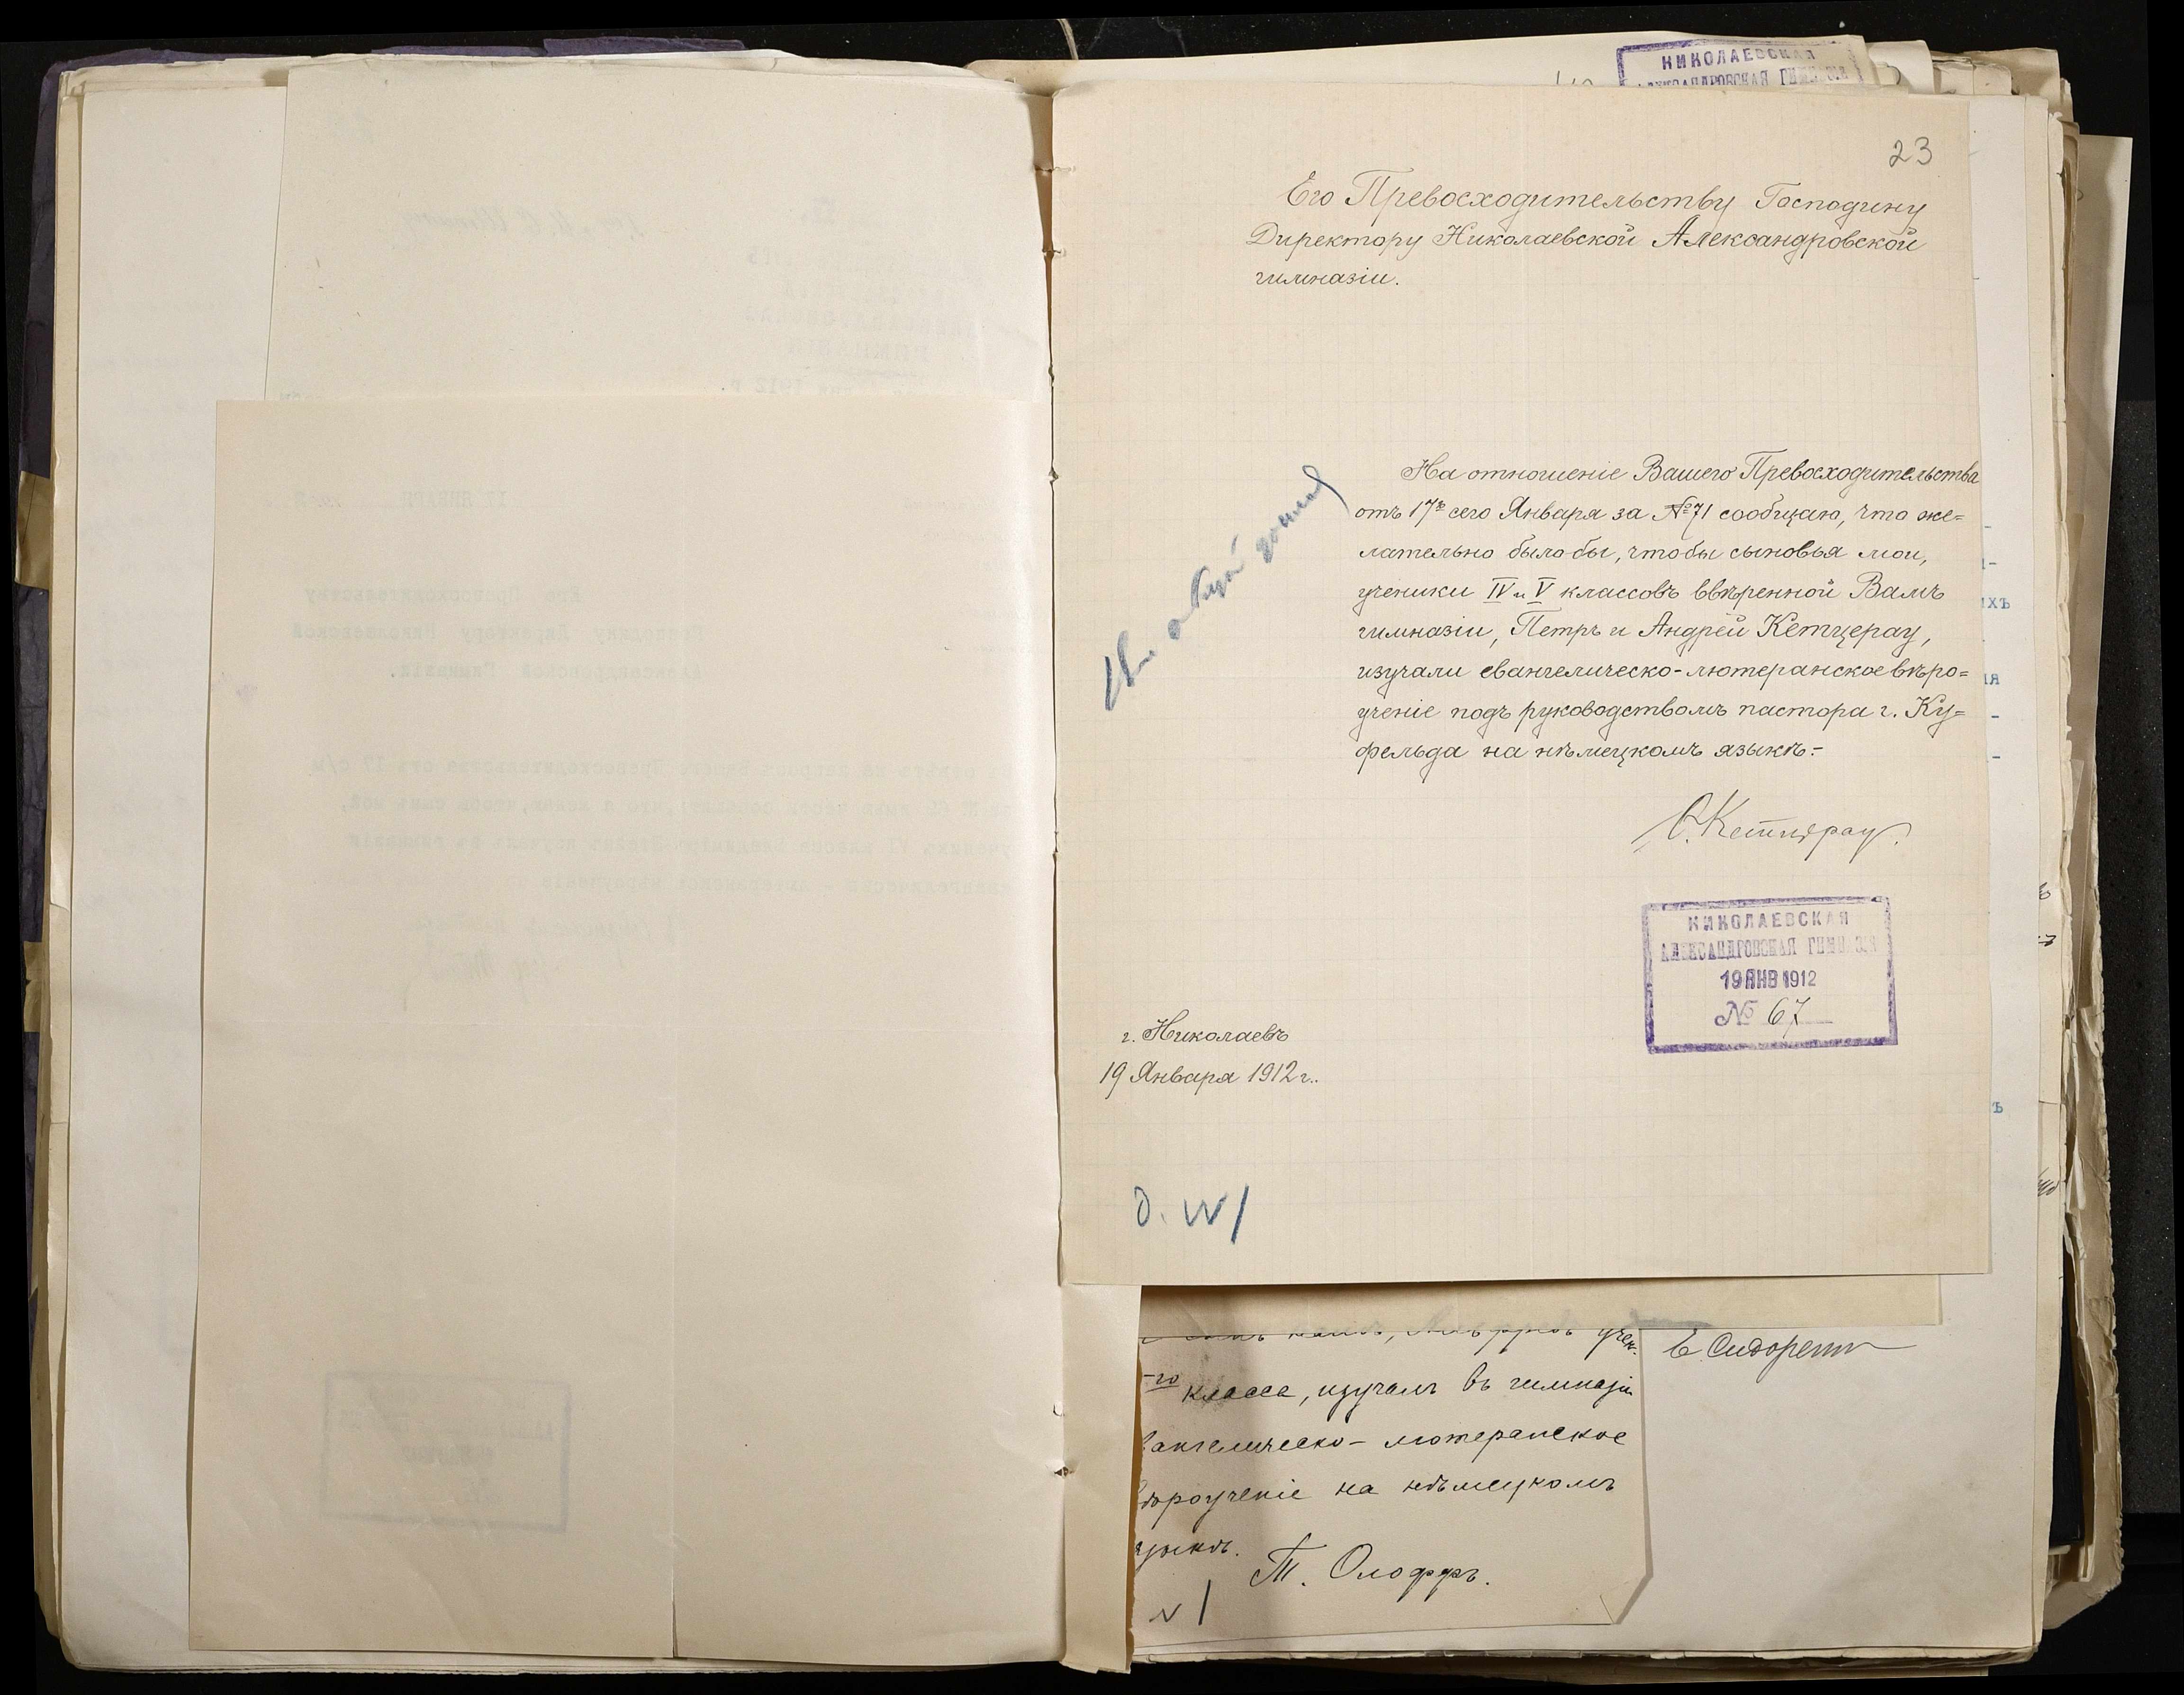 НИКОЛАЕВСКАЯ
АЛЕКСАНДРОВСКАЯ ГИМНАЗІЯ
23
Его Превосходительству Господину
Директору Николаевской Александровской
гимназіи.
На отношеніе Вашего Превосходительства
отъ 17го сего Января за №71 сообщаю, что же=
лательно было бы, чтобы сыновья мои,
ученики IV и V классовъ ввѣренной Вамъ
гимназіи, Петръ и Андрей Кетцерау,
изучали евангелическо-лютеранское вѣро=
ученіе подъ руководствомъ пастора г. Ку=
фельда на нѣмецкомъ языкѣ.-
С. Кетцерау.
НИКОЛАЕВСКАЯ
АЛЕКСАНДРОВСКАЯ ГИМНАЗІЯ
19 ЯНВ 1912
№ 67
г. Николаевъ
19 Января 1912 г.
класса, изучалъ въ гимназіи
вангелическо-лютеранское
ѣроученіе на нѣмецкомъ
языкѣ.
Т. Олоффъ.